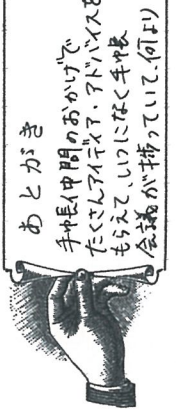 あとがき
手帳仲間のおかげで
たくさんアイディア・アドバイスを
もらえて、いつになく手帳
会議が捗っていて、何より